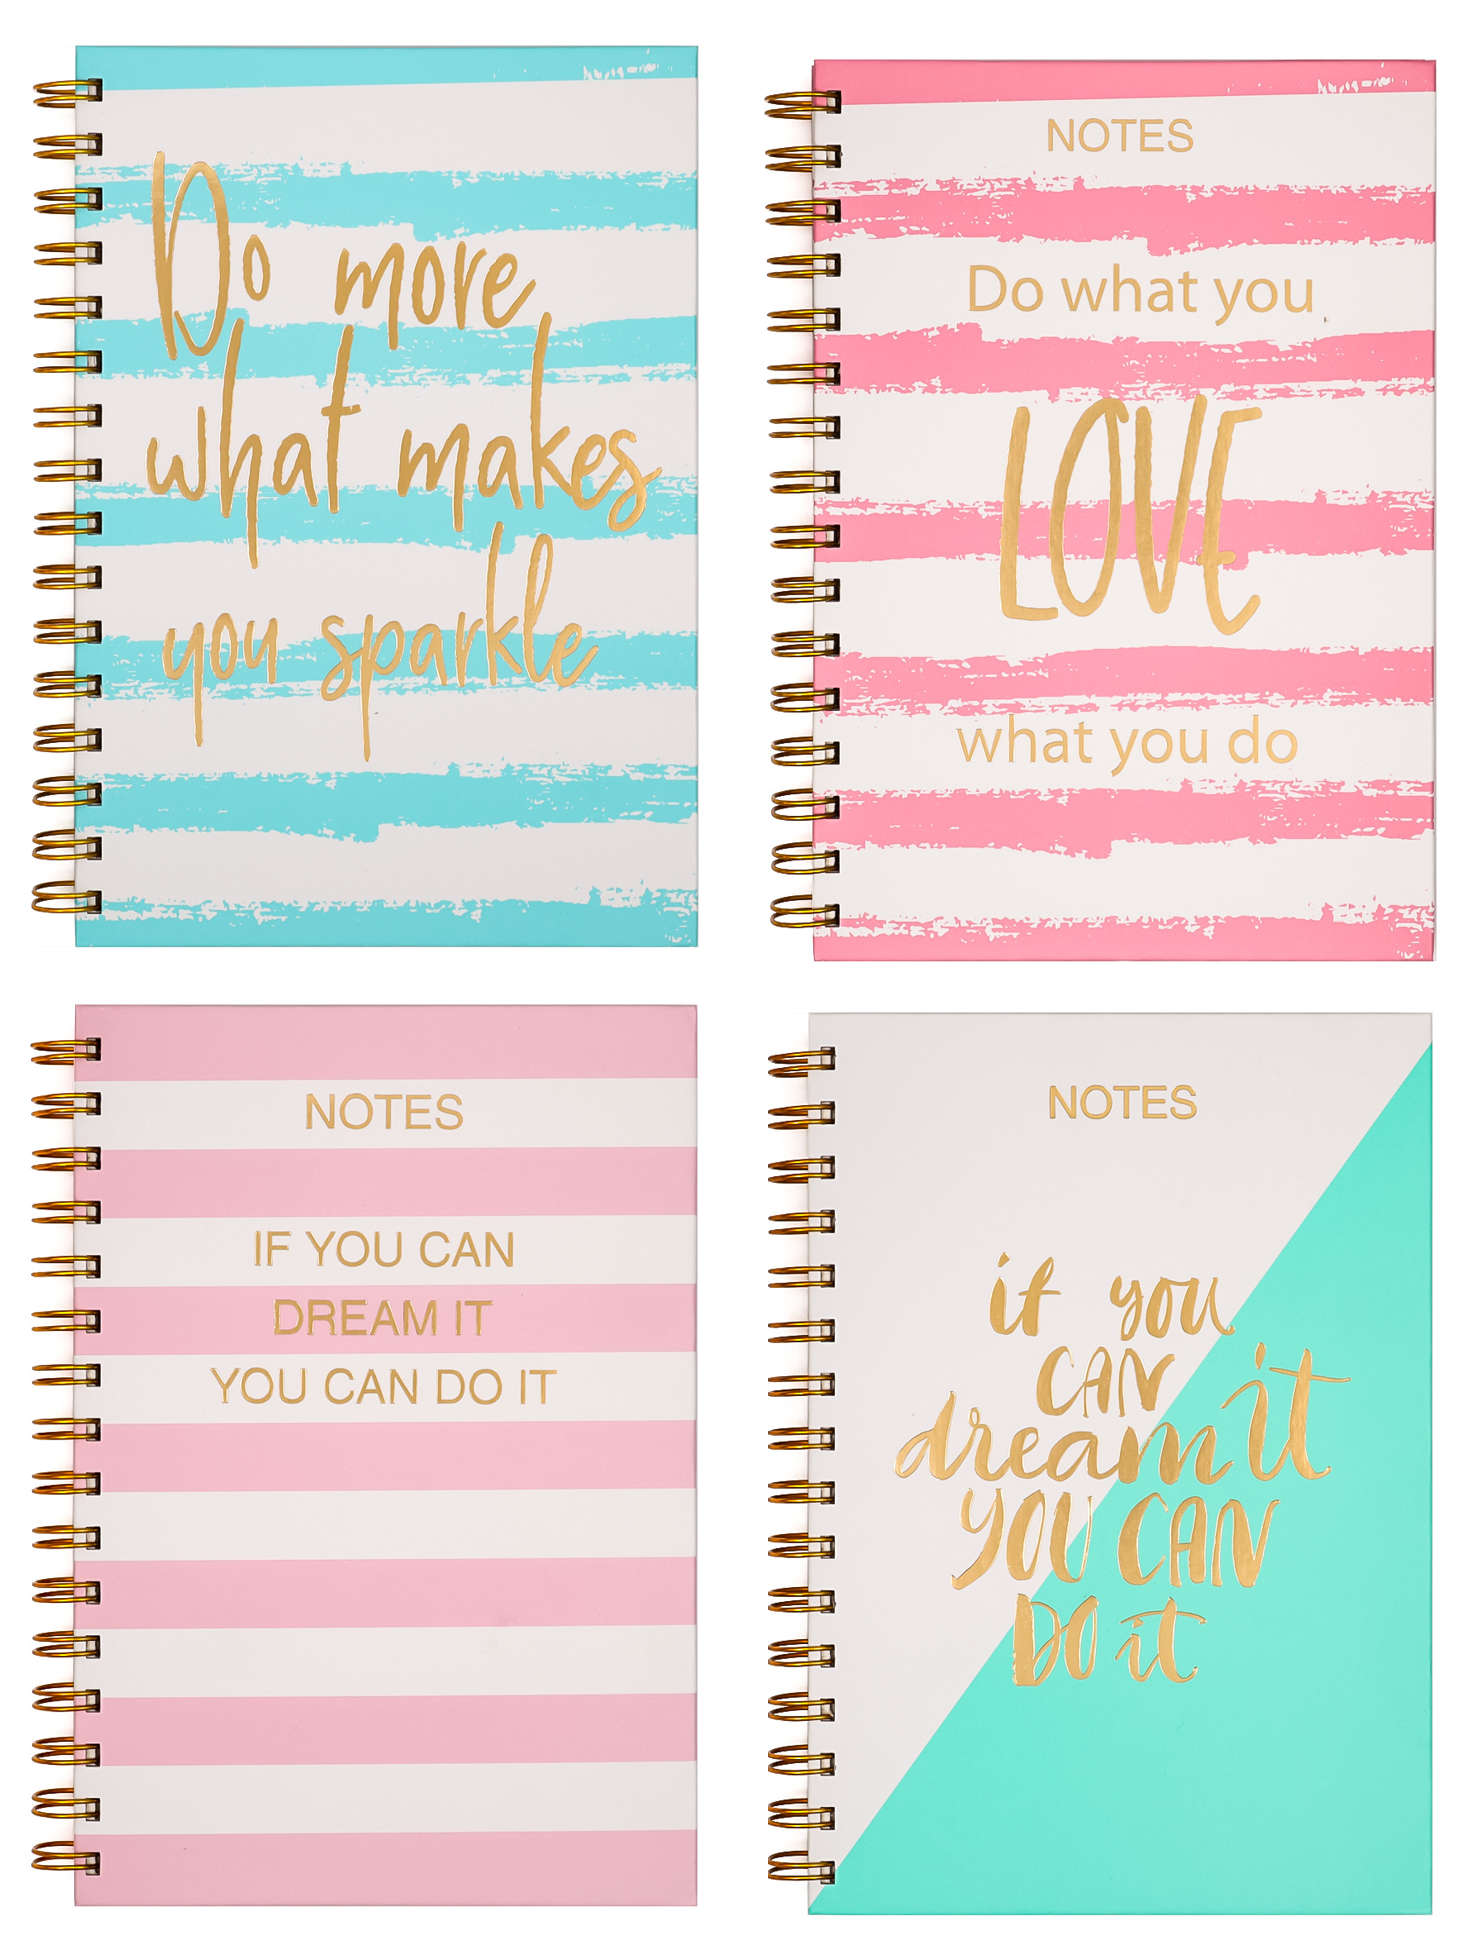 Do more
what makes
you sparkle
NOTES
Do what you
LOVE
what you do
NOTES
IF YOU CAN
DREAM IT
YOU CAN DO IT
NOTES
if you
CAN
dream it
YOU CAN
DO it